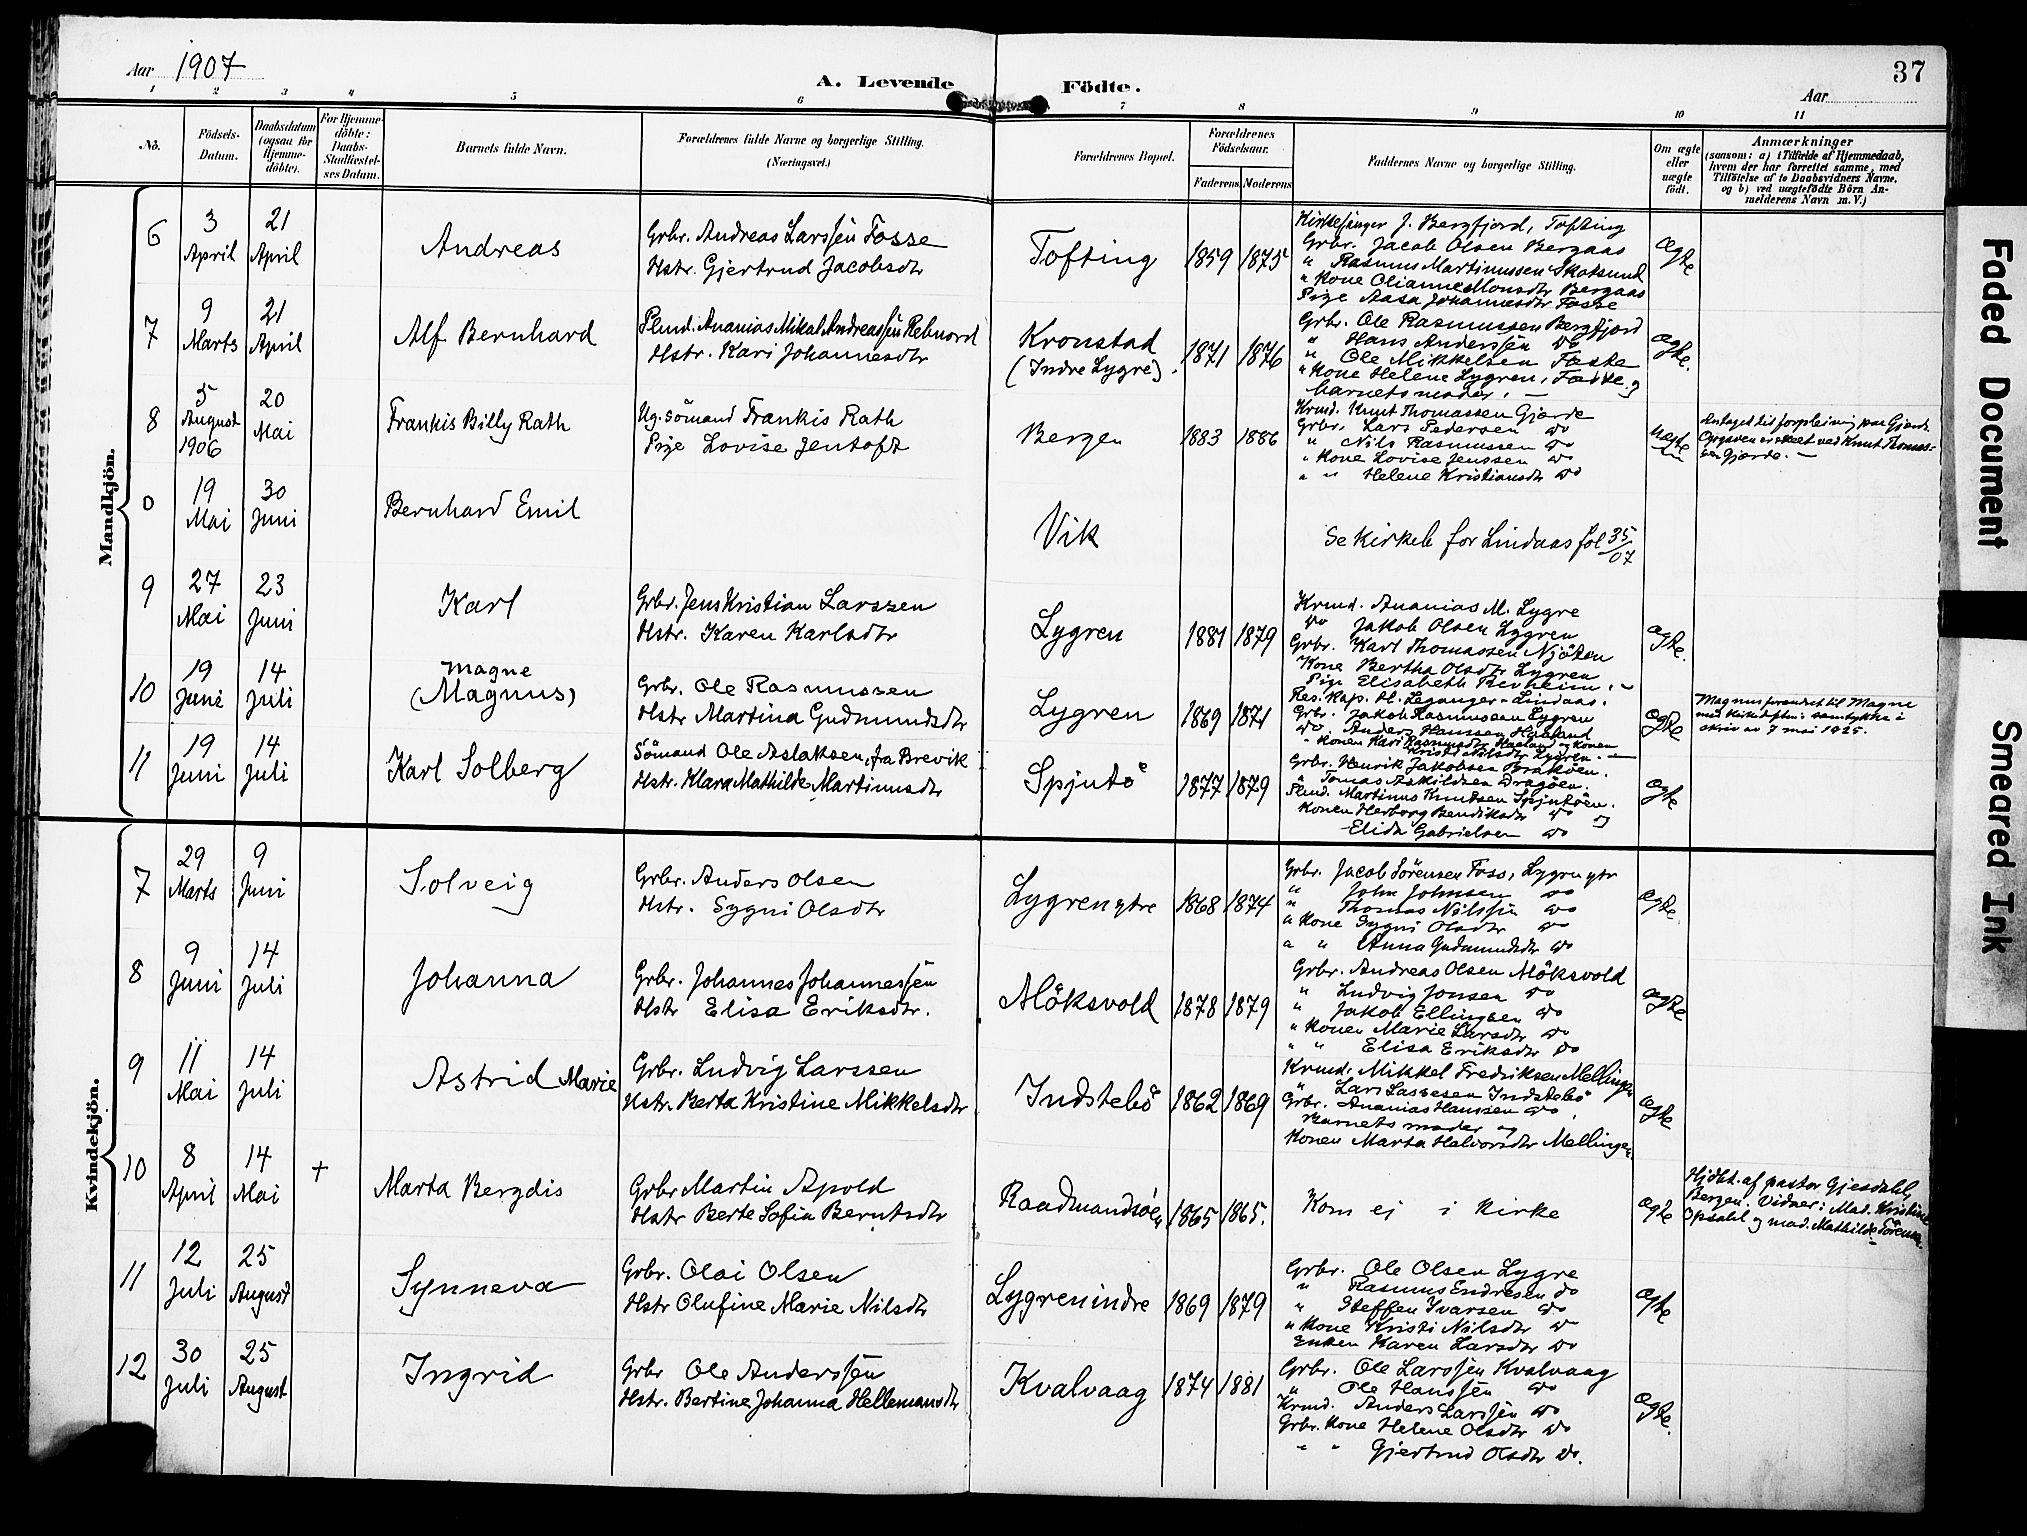 Aar 1907
A. Levende Födte.
37
Aar
1 2 3 4 5 6 7 8 9 10 11
No.
Födsels-Datum.
Daabsdatum (ogsaa for Hjemme-döbte).
For Hjemme-döbte: Daabs-Stadfæstel-ses Datum.
Barnets fulde Navn.
Forældrenes fulde Navne og borgerlige Stilling.
(Næringsvei.)
Forældrenes Bopæl.
Forældrenes Födselsaar.
Faderens Moderens
Faddernes Navne og borgerlige Stilling.
Om ægte eller uægte födt.
Anmærkninger
(saasom: a) i Tilfælde af Hjemmedaab,
hvem der har forrettet samme, med
Tilföielse af to Daabsvidners Navne,
og b) ved uægtefödte Börn An-
melderens Navn m. V.)
Mandkjön.
6
3 April
21 April
Andreas
Grbr. Andreas Larssen Fosse
Hstr. Gjertrud Jacobsdtr
Tofting
1859 1875
Kirkesinger J. Bergfjord, Tofting
Grbr. Jacob Olsen Bergaas
" Rasmus Martinussen Skatsund
" Kone Olianne Monsdtr Bergaas
Pige Aasa Johannesdtr Fosse
ægte
7
9 Marts
21 April
Alf Bernhard
Plmd. Ananias Mikal Andreassen Rebnord
Hstr. Kari Johannesdtr
Kronstad
(Indre Lygre).
1871 1876
Grbr. Ole Rasmussen Bergfjord
" Hans Anderssen do
" Ole Mikkelsen Fæste
" Kone Helene Lygren, Fæste og
barnets moder. —
ægte.
8
5 August 1906
20 Mai
Frankis Billy Rath
Ug. sömand Frankis Rath
Pige Lovise Jentoft
Bergen
1883 1886
Krmd. Knut Thomassen Gjerde
Grbr. Lars Pedersen do
" Nils Rasmussen do
" Kone Lovise Jenssen do
" " Helene Kristiansdtr do
uægte
Antaget til forpleining paa Gjerde.
Opgaven er skeet ved Knut Thomas-
sen Gjerde. —
0
19 Mai
30 Juni
Bernhard Emil
Vik
Se Kirkeb for Lindaas fol 35/07
9
27 Mai
23 Juni
Karl
Grbr. Jens Kristian Larssen
Hstr. Karen Karlsdtr
Lygren
1881 1879
Krmd. Ananias M. Lygre
do Jakob Olsen Lygren
Grbr. Karl Thomassen Njöten
Kone Bertha Olsdtr Lygren
Pige Elisabeth Revheim. —
ægte.
10
19 Juni
14 Juli
Magne
(Magnus)
Grbr. Ole Rasmussen
Hstr Martina Gudmundsdtr
Lygren
1869 1871
Res. Kap. H. Leganger-Lindaas.
Grbr. Jakob Rasmussen Lygren
do. Anders Hanssen Haaland
" Konen Kari Rasmusdtr Haaland og Konen
Kristi Nilsdtr Lygren. —
ægte
Magnus forandret til Magne
med Kirkedptm: samtykke i
skriv av 7 mai 1925.
11
19 Juni
14 Juli
Karl Solberg
Sömand Ole Aslaksen, fra Brevik
Hstr. Klara Mathilde Martinusdtr
Spjutö
1877 1879
Grbr. Henrik Jakobsen Braköen.
" Tomas Askildsen Dragöen.
Plmd. Martinus Knudsen Spjutöen.
Konen Herborg Bendiksdtr do og
Elida Gabrielsen do
ægte
Kvindekjön.
7
29 Marts
9 Juni
Solveig
Grbr. Anders Olsen
Hstr. Sygni Olsdtr
Lygren ytre
1868 1874
Grbr. Jacob Sörensen Foss, Lygren ytr
" John Johnsen do
" Thomas Nilssen do
" Kone Sygni Olsdtr do
" " Anna Gudmundsdtr do
ægte.
8
9 Juni
14 Juli
Johanna
Grbr. Johannes Johannessen
Hstr Elisa Eriksdtr.
Möksvold
1878 1879
Grbr. Andreas Olsen Möksvold
" Ludvig Jonsen do
" Jakob Ellingsen do
" Konen Marie Larsdtr do
" " Elisa Eriksdtr do
ægte
9
11 Mai
14 Juli
Astrid Marie
Grbr. Ludvig Larssen
Hstr. Berta Kristine Mikkelsdtr
Indstebö
1862 1869
Krmd. Mikkel Fredriksen Mellingen
" Lars Lassesen Indstebö
Grbr. Ananias Hanssen do.
Barnets moder og
Konen Marta Halvorsdtr Mellingen.
ægte
10
8 April
14 Mai
+
Marta Bergdis
Grbr Martin Apold
Hstr Berte Sofia Berntsdtr
Raadmandsöen
1865 1865.
Kom ej i Kirke
ægte
Hjdbt. af pastor Gjesdahl,
Bergen. Vidner: Mad. Kristine
Opsahl og mad. Mathilde Sörensen.
11
12 Juli
25 August
Synneva
Grbr. Olai Olsen
Hstr Olufine Marie Nilsdtr
Lygren indre
1869 1879
Grbr. Ole Olsen Lygre
" Rasmus Endresen do
" Steffen Ivarsen do
" Kone Kristi Nilsdtr do
Enken Karen Larsdtr do
ægte
12
30 Juli
25 August
Ingrid
Grbr Ole Anderssen
Hstr. Bertine Johanna Hellemansdtr
Kvalvaag
1874 1881
Grbr. Ole Larssen Kvalvaag
" Ole Hanssen do
Krmd. Anders Larssen do
Grbr. Kone Helene Olsdtr do
" " Gjertrud Olsdtr do.
ægte.
Faded Document
Smeared Ink